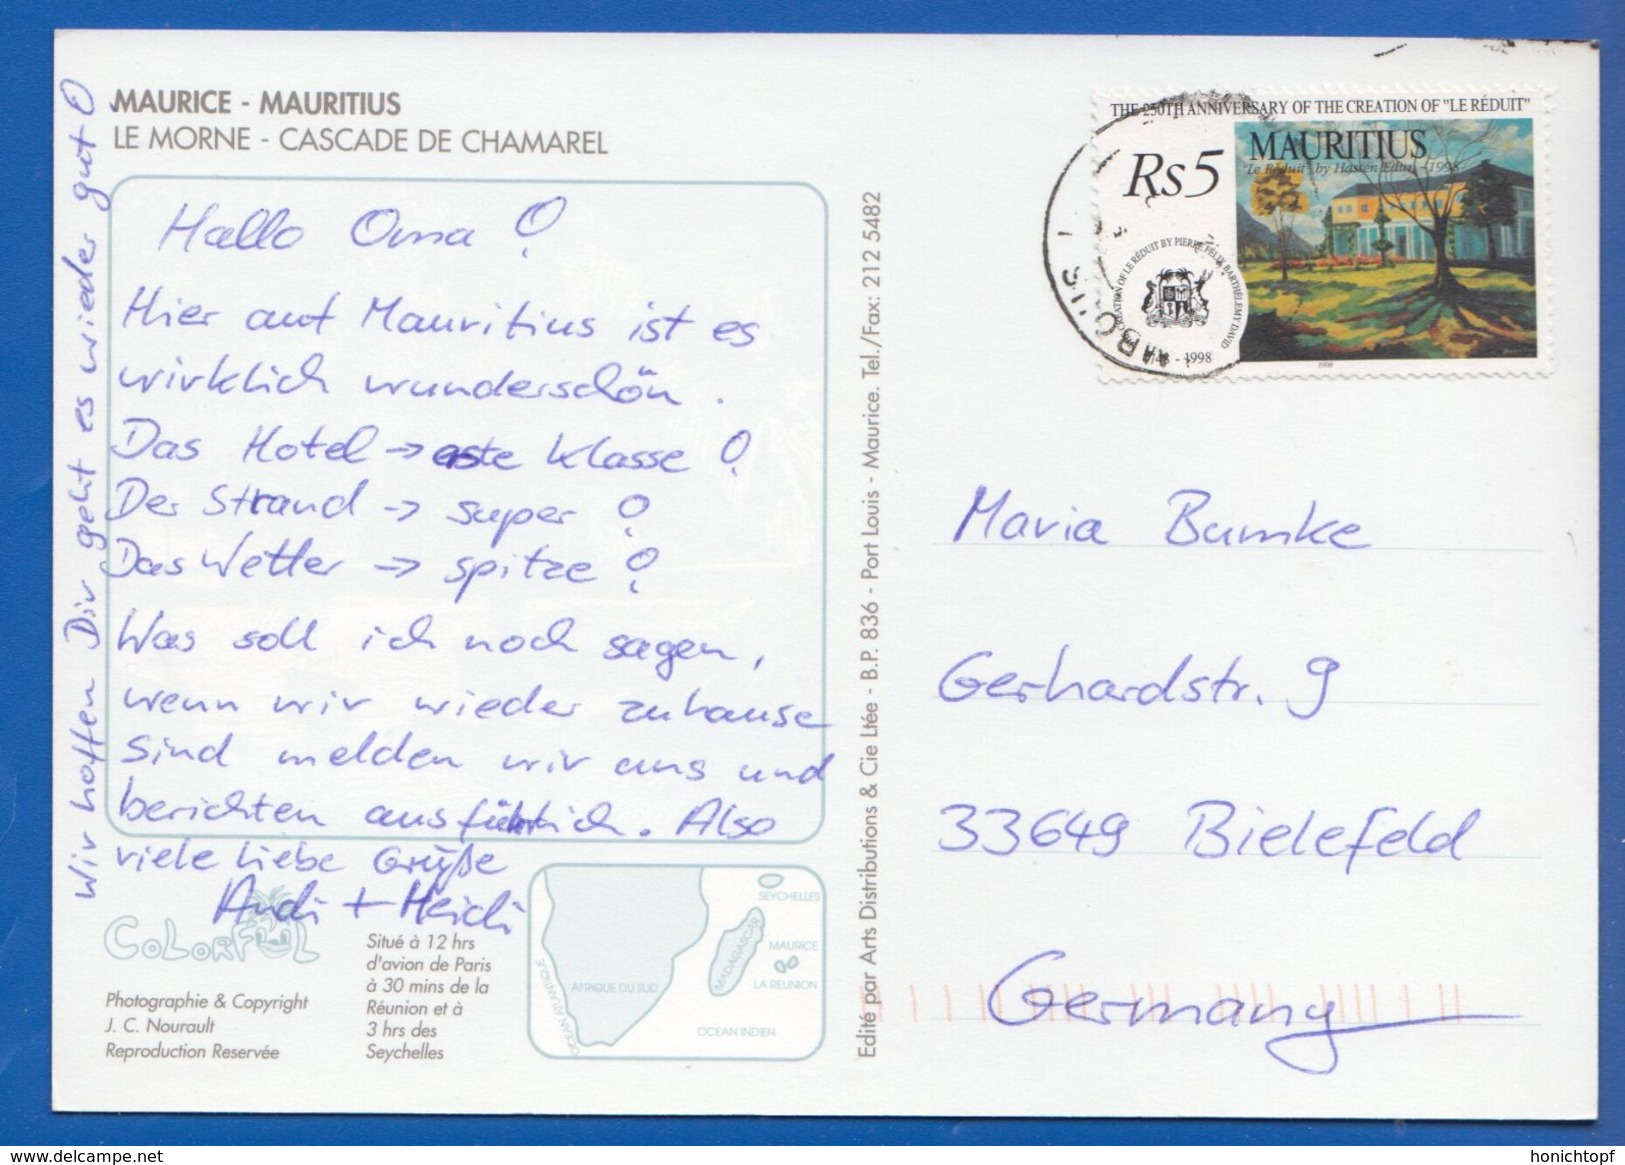 MAURICE - MAURITIUS
LE MORNE - CASCADE DE CHAMAREL
Hallo Oma !
Hier auf Mauritius ist es
wirklich wunderschön.
Das Hotel → erste Klasse !
Der Strand → super !
Das Wetter → spitze !
Was soll ich noch sagen,
wenn wir wieder zuhause
sind melden wir uns und
berichten ausführlich. Also
viele liebe Grüße
Andi + Heidi
Wir hoffen Dir geht es wieder gut !
COLORFUL
Photographie & Copyright
J. C. Nourault
Reproduction Reservée
Situé à 12 hrs
d'avion de Paris
à 30 mins de la
Réunion et à
3 hrs des
Seychelles
OCEAN ATLANTIQUE
AFRIQUE DU SUD
MADAGASCAR
SEYCHELLES
MAURICE
LA REUNION
OCEAN INDIEN
Edité par Arts Distributions & Cie Ltée - B.P. 836 - Port Louis - Maurice. Tel./Fax: 212 5482
THE 250TH ANNIVERSARY OF THE CREATION OF "LE RÉDUIT"
Rs5
MAURITIUS
"Le Réduit" by Hassen Edun - 1998
CREATION OF LE RÉDUIT BY PIERRE FÉLIX BARTHÉLEMY DAVID
1748 - 1998
1998
Maria Bumke
Gerhardstr. 9
33649 Bielefeld
Germany
delcampe.net
honichtopf